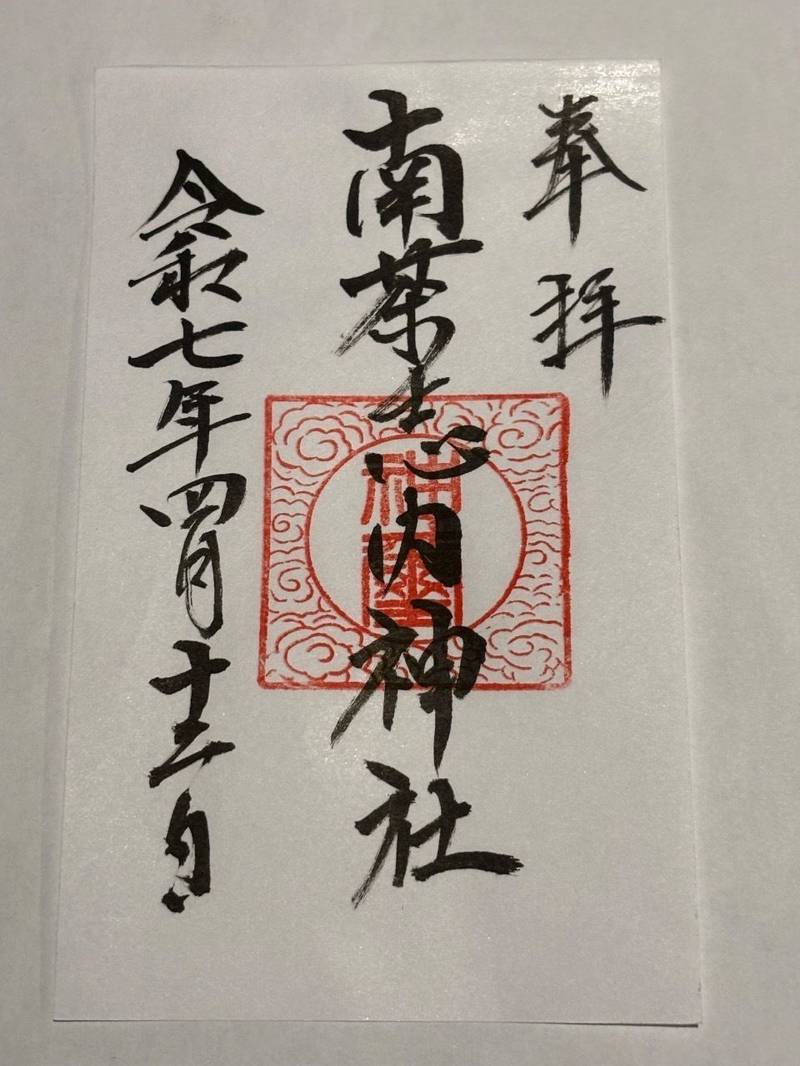 奉拝
南茶志内神社
令和七年四月十二日